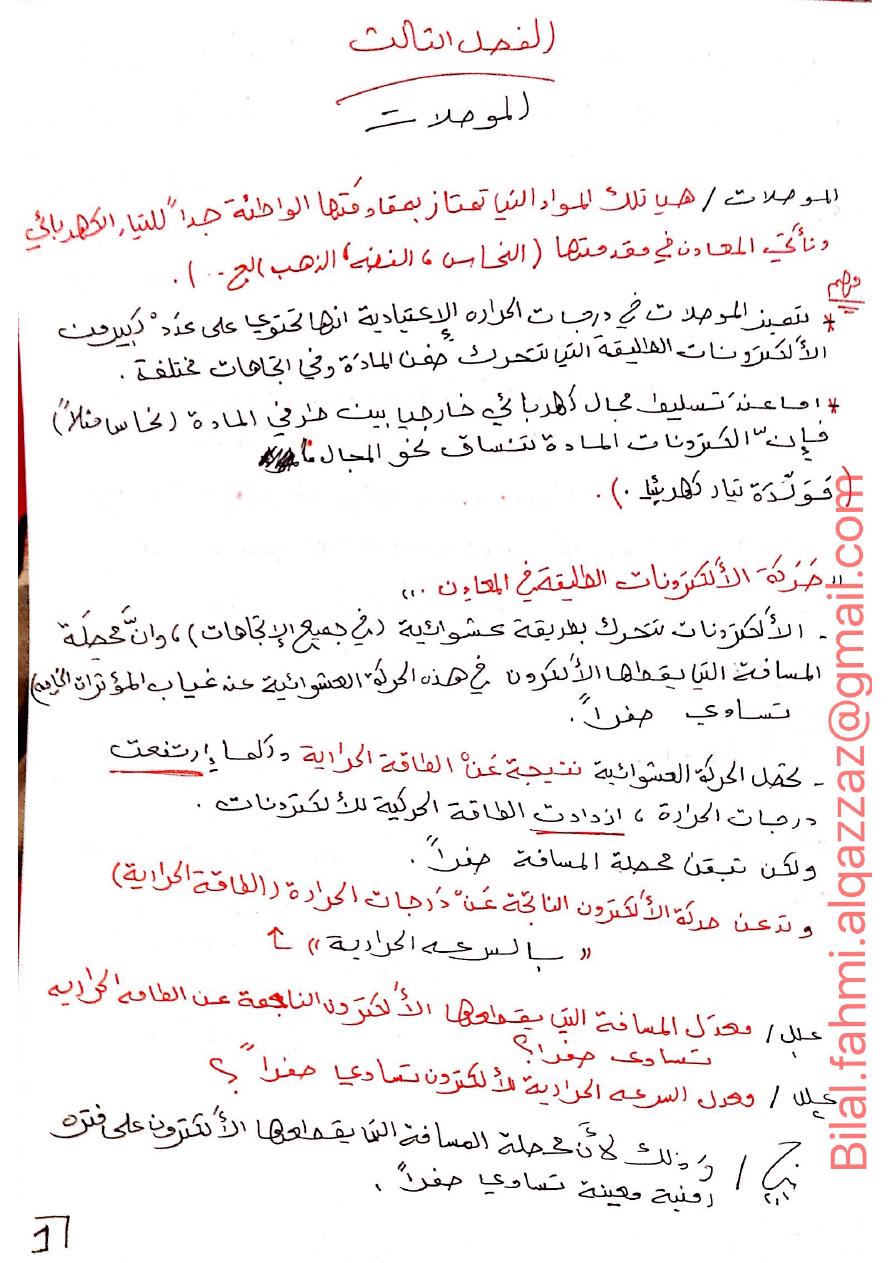 الفصل الثالث
الموصلات
الموصلات / هي تلك المواد التي تمتاز بمقاومتها الواطئة جداً للتيار الكهربائي
وتأتي المعادن في مقدمتها (النحاس، الفضه، الذهب الخ ...).
مهم
* تتميز الموصلات في درجات الحراره الإعتيادية انها تحتوي على عَدَدْ كبير من
الألكترونات الطليقة التي تتحرك ضمن المادَة وفي اتجاهات مختلفة.
* اما عند تسليط مجال كهربائي خارجيا بين طرفي المادة (نحاس مثلاً)
فإنّ الكترونات المادة تنساق نحو المجال
(مَوَلّدَة تيار كهربئيا.).
"حَرَكَة الألكترونات الطليقة في المعادن ...
- الألكترونات تتحرك بطريقة عشوائية (في جميع الإتجاهات)، وانَّ محصلَة
المسافة التي يقطعها الألكترون في هذه الحركة العشوائية عند غياب المؤثرات الخارجية)
تساوي صفراً.
- تحصل الحركة العشوائية نتيجة عَنْ الطاقة الحرارية وكلما إرتفعت
درجات الحرارة، ازدادت الطاقة الحركية للألكترونات.
ولكن تبقى محصلة المسافة صفراً.
وتدعى حركة الألكترون الناتجة عَنْ دَرجات الحرارة (الطاقة الحرارية)
"بالسرعه الحرارية" ↑
علل / معدَل المسافة التي يقطعها الألكترون الناجمة عن الطاقه الحراريه
تساوي صفرا؟
علل / معدل السرعه الحرارية للألكترون تساوي صفراً؟
ج / وَذلك لأنَّ محصلة المسافة التي يقطعها الألكترون على فتره
زمنية معينة تساوي صفراً.
1
Bilal.fahmi.alqazzaz@gmail.com